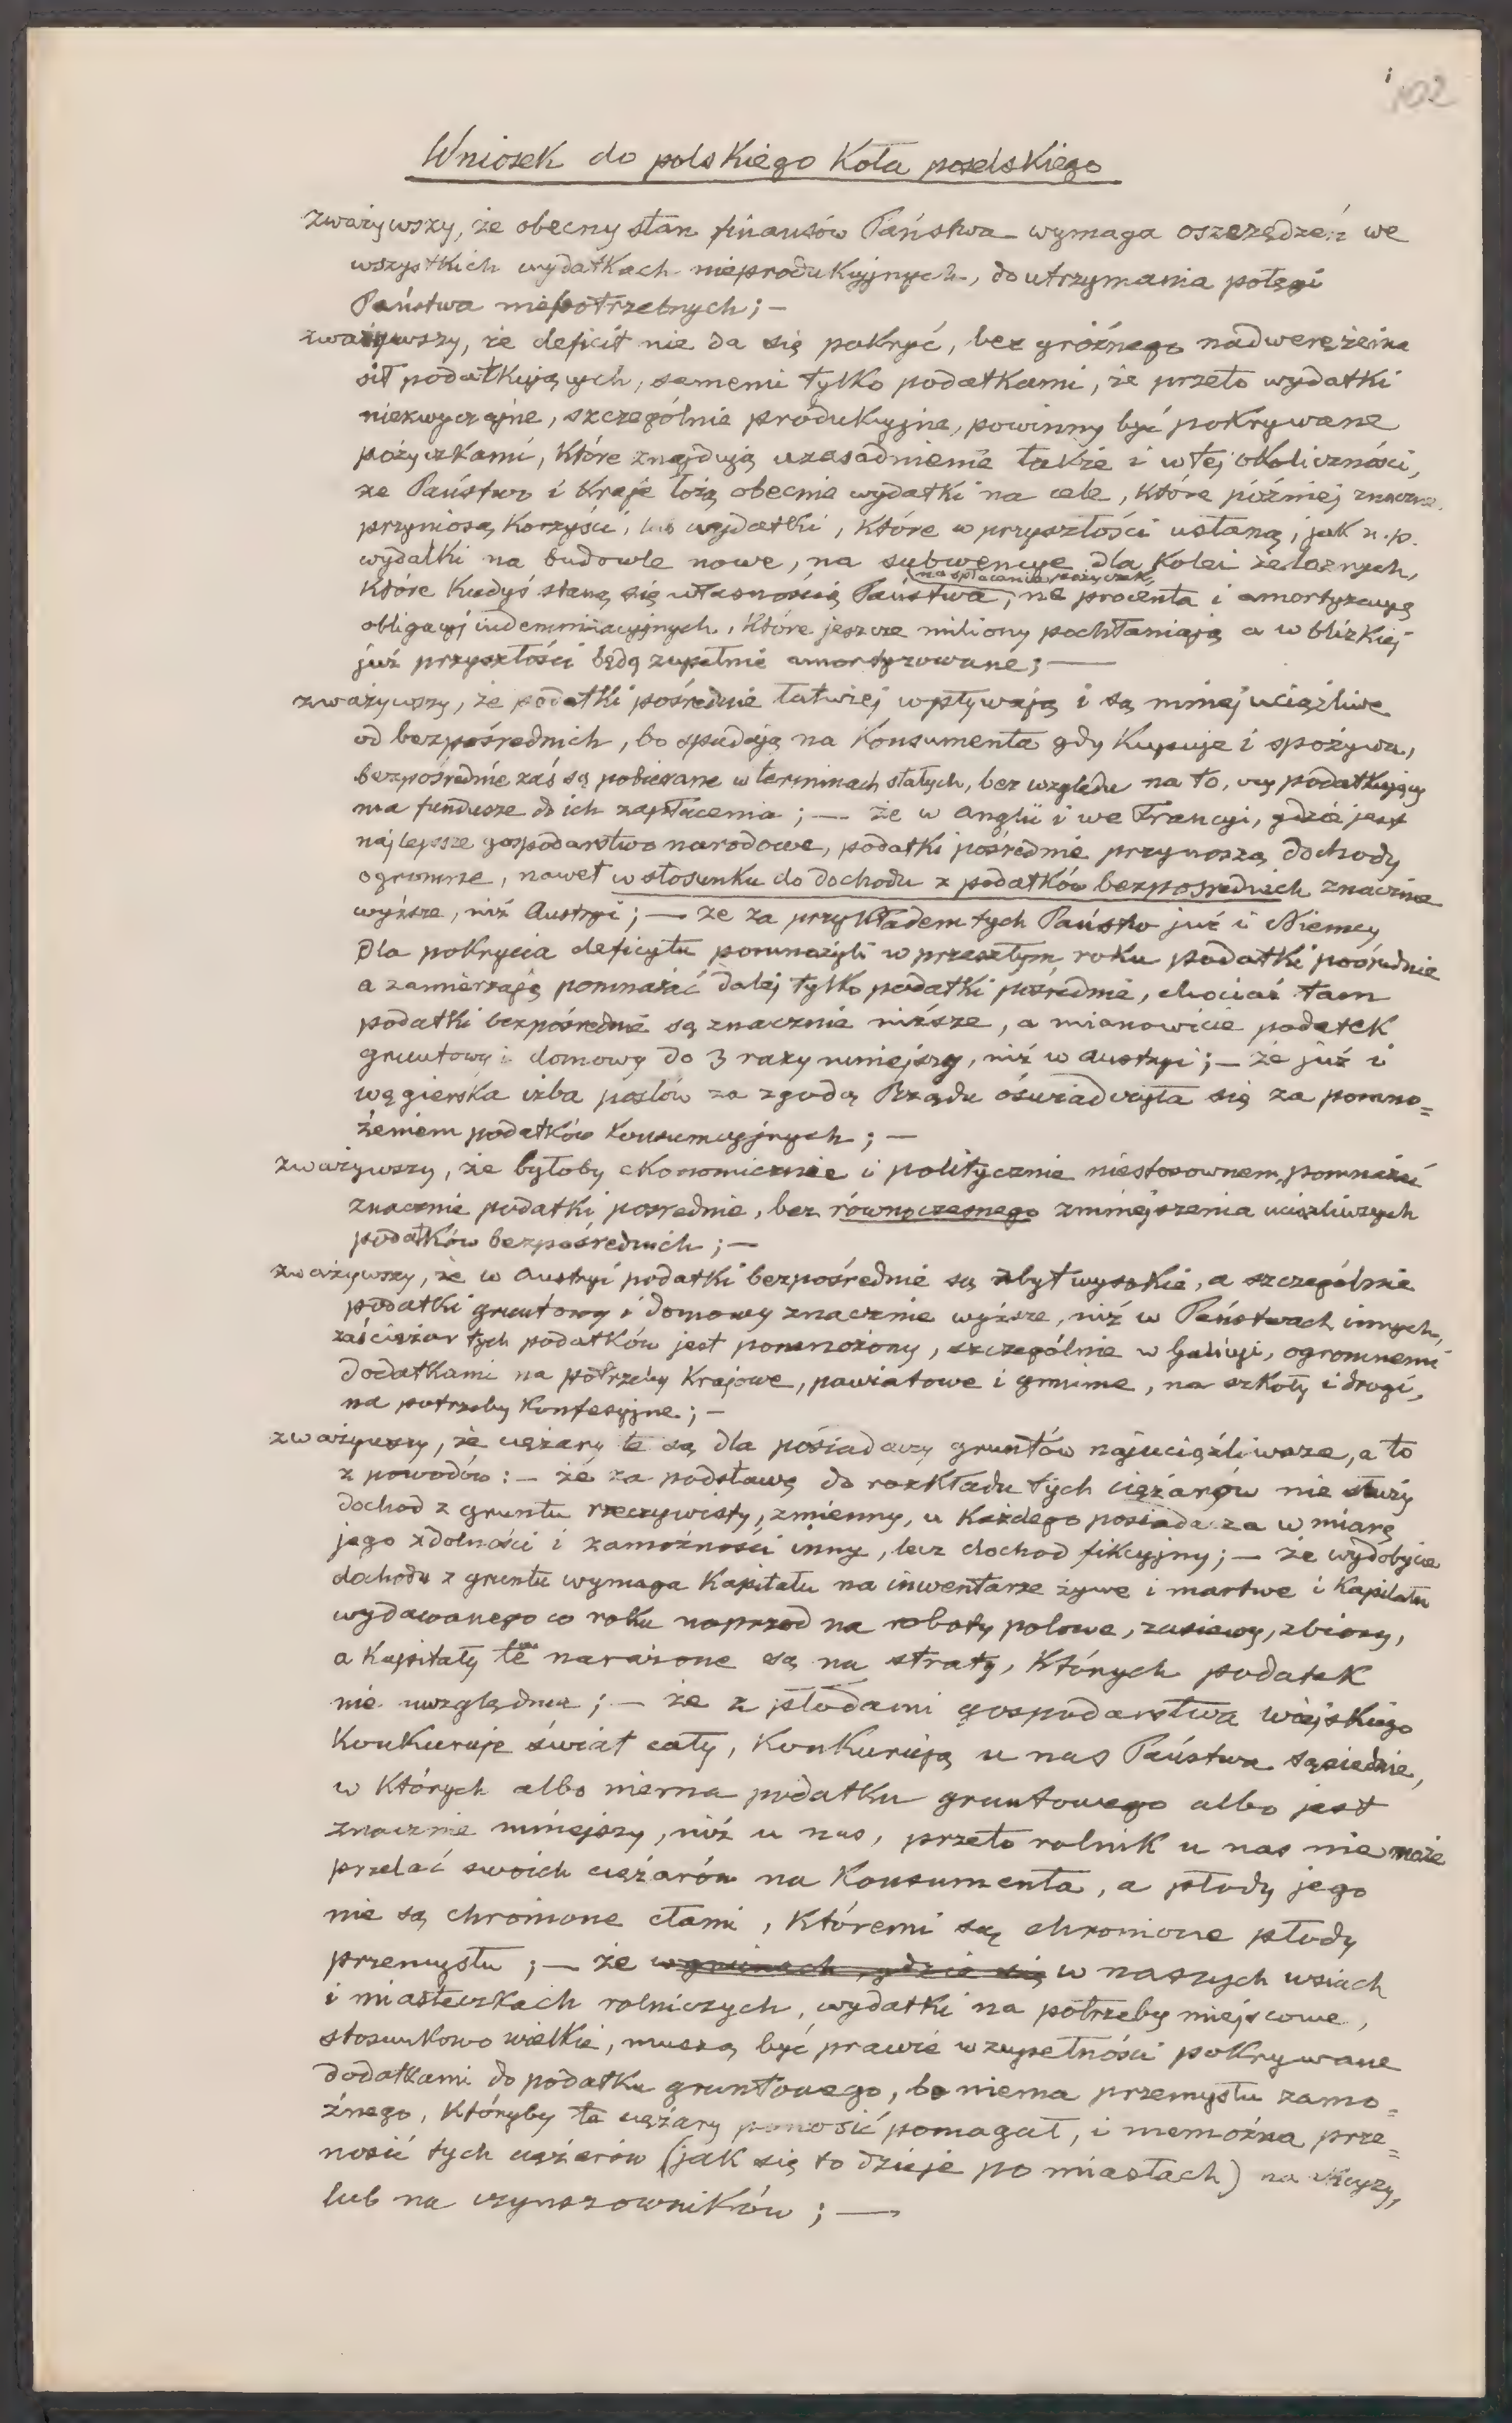 102
Wniosek do polskiego Koła poselskiego
zważywszy, że obecny stan finansów Państwa wymaga oszczędzeń we
wszystkich wydatkach nieprodukcyjnych, do utrzymania potęgi
Państwa niepotrzebnych; –
zważywszy, że deficit nie da się pokryć, bez groźnego nadwerężenia
sił podatkujących, samemi tylko podatkami, że przeto wydatki
niezwyczajne, szczególnie produkcyjne, powinny być pokrywane
pożyczkami, które znajdują uzasadnienie także i w tej okoliczności,
że Państwo i Kraje łożą obecnie wydatki na cele, które później znaczne
przyniosą korzyści, lub wydatki, które w przyszłości ustaną, jak n.p.
wydatki na budowle nowe, na subwencye dla Kolei żelaznych,
na spłacenie pożyczek,
które kiedyś staną się własnością Państwa, na procenta i amortyzacyę
obligacyj indemnizacyjnych, które jeszcze miliony pochłaniają a w blizkiej
już przyszłości będą zupełnie amortyzowane; —
zważywszy, że podatki pośrednie łatwiej wpływają i są mniej uciążliwe
od bezpośrednich, bo spadają na Konsumenta gdy kupuje i spożywa,
bezpośrednie zaś są pobierane w terminach stałych, bez względu na to, czy podatkujący
ma fundusze do ich zapłacenia; — że w Anglii i we Francyi, gdzie jest
najlepsze gospodarstwo narodowe, podatki pośrednie przynoszą dochody
ogromne, nawet w stosunku do dochodu z podatków bezpośrednich znacznie
wyższe, niż Austryi; — że za przykładem tych Państw już i Niemcy
dla pokrycia deficytu pomnożyli w przeszłym roku podatki pośrednie
a zamierzają pomnażać dalej tylko podatki pośrednie, chociaż tam
podatki bezpośrednie są znacznie niższe, a mianowicie podatek
gruntowy i domowy do 3 razy mniejszy, niż w Austryi; – że już i
węgierska izba posłów za zgodą Rządu oświadczyła się za pomno=
żeniem podatków konsumcyjnych; –
zważywszy, że byłoby ekonomicznie i politycznie niestosownem, pomnażać
znacznie podatki pośrednie, bez równoczesnego zmniejszenia uciążliwszych
podatków bezpośrednich; –
zważywszy, że w Austryi podatki bezpośrednie są zbyt wysokie, a szczególnie
podatki gruntowy i domowy znacznie wyższe, niż w Państwach innych,
zaś ciężar tych podatków jest pomnożony, szczególnie w Galicyi, ogromnemi
dodatkami na potrzeby Krajowe, powiatowe i gminne, na szkoły i drogi,
na potrzeby Konfesyjne; –
zważywszy, że ciężary te są dla posiadaczy gruntów najuciążliwsze, a to
z powodów: – że za podstawę do rozkładu tych ciężarów nie służy
dochod z gruntu rzeczywisty, zmienny, u każdego posiadacza w miarę
jego zdolności i zamożności inny, lecz dochod fikcyjny; – że wydobycie
dochodu z gruntu wymaga Kapitału na inwentarze żywe i martwe i Kapitału
wydawanego co roku naprzod na roboty polowe, zasiewy, zbiory,
a Kapitały te narażone są na straty, których podatek
nie uwzględnia; – że z płodami gospodarstwa wiejskiego
Konkuruje świat cały, Konkurują u nas Państwa sąsiednie,
w których albo niema podatku gruntowego albo jest
znacznie mniejszy, niż u nas, przeto rolnik u nas nie może
przelać swoich ciężarów na Konsumenta, a płody jego
nie są chronione cłami, któremi są chronione płody
przemysłu; — że w gminach, gdzie się w naszych wsiach
i miasteczkach rolniczych, wydatki na potrzeby miejscowe,
stosunkowo wielkie, muszą być prawie w zupełności pokrywane
dodatkami do podatku gruntowego, bo niema przemysłu zamo=
żnego, któryby te ciężary ponosić pomagał, i niemożna prze=
nosić tych ciężarów (jak się to dzieje po miastach) na
lub na czynszowników; —